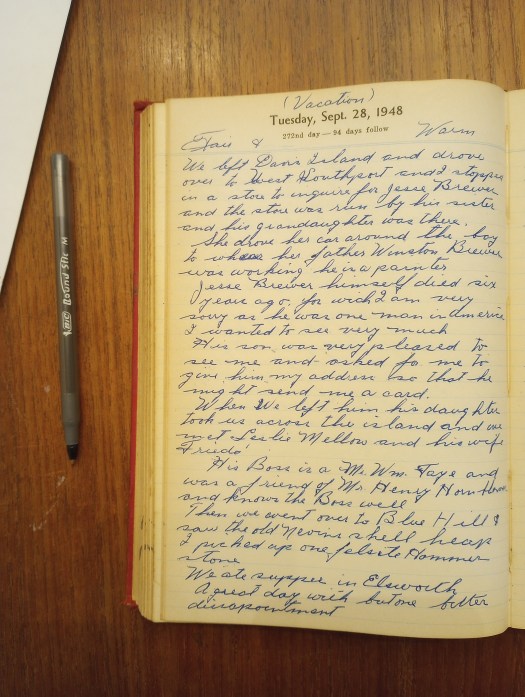 (Vacation)
Tuesday, Sept. 28, 1948
272nd day—94 days follow
Fair & Warm
We left Davis Island and drove
over to West Southport and I stopped
in a store to inquire for Jesse Brewer
and the store was run by his sister
and his grandaughter was there.
She drove her car around the bay
to where her father Winston Brewer
was working he is a painter
Jesse Brewer himself died six
years ago. for wich I am very
sorry as he was one man in america
I wanted to see very much
His son was very pleased to
see me and asked for me to
give him my address so that he
might send me a card.
When We left him his daughter
took us across the island and we
met Leslie Mellow and his wife
Friede
His Boss is a Mr. Wm. Faye and
was a friend of Mr Henry
and knows the Boss well
Then we went over to Blue Hill &
saw the old Nevins shell heap
I picked up one felsite Hammer
stone
We ate supper in Elsworth
A great day with but one bitter
disapointment
BIC Round Stic M